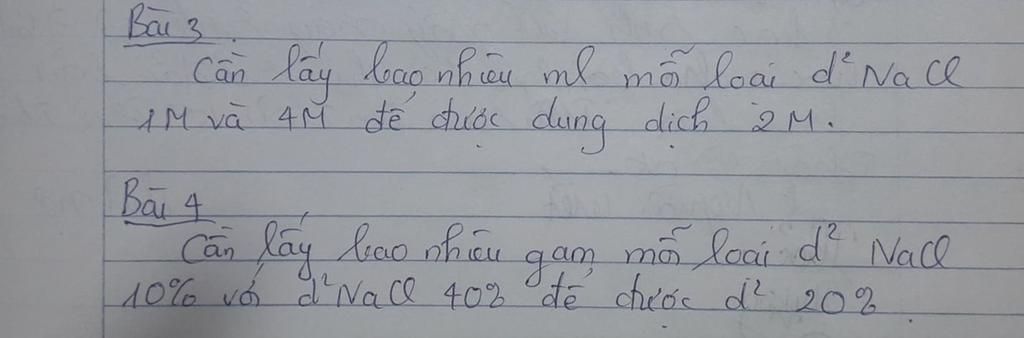 Bài 3
Cần lấy bao nhiêu ml mỗi loại d² NaCl
1M và 4M để được dung dịch 2M.
Bài 4
Cần lấy bao nhiêu gam mỗi loại d² NaCl
10% với d² NaCl 40% để được d² 20%.